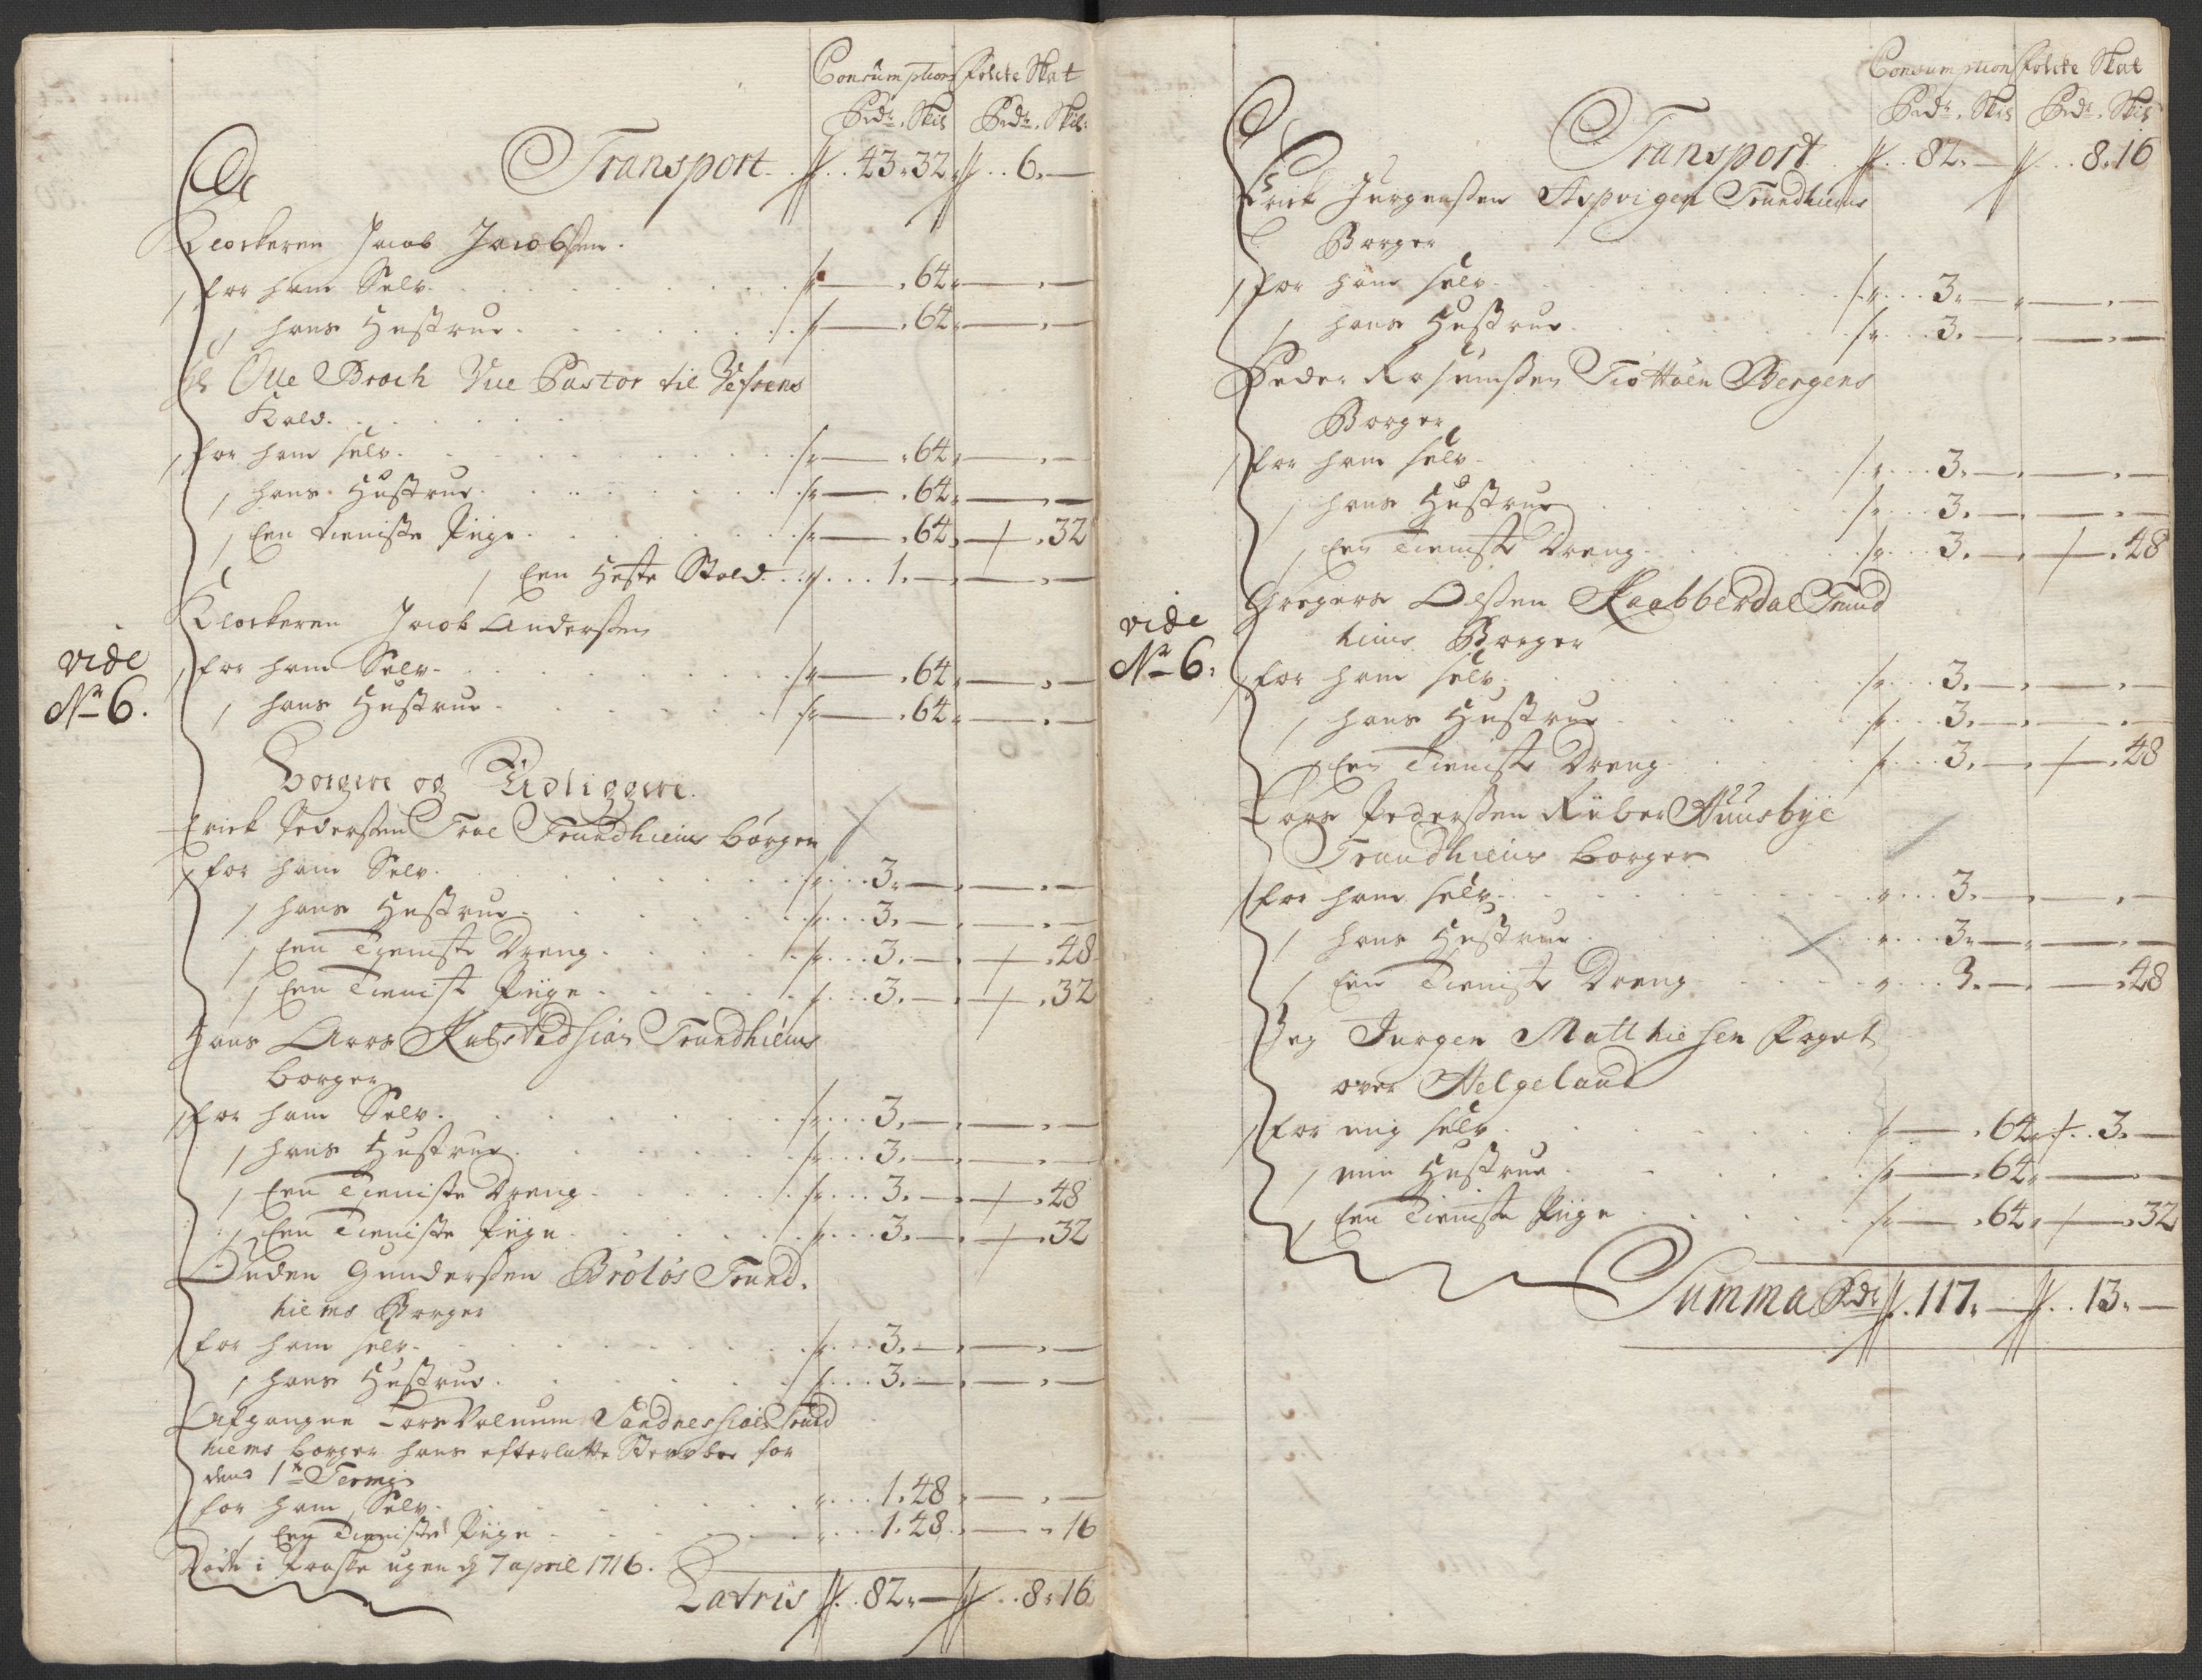 Consumption Folcke Skat
Rdr. Skil Rdr. Skil:
Transport 43. 32 6. —
Klockeren Jacob Jacobsen.
for ham Selv — . 64. — . —
hans Hustrue — . 64. — . —
Hr Oue Broch Vice Pastor til Vefsens
Kald.
for ham selv — . 64. — . —
hans Hustrue — . 64. — . —
Een tieniste Piige — . 64. — . 32
Een Heste Stald 1. — . — . —
Klockeren Jacob Andersen
vide
No 6.
for ham Selv — . 64. — . —
hans Hustrue — . 64. — . —
Borgere og Udliggere.
Erick Pedersen Troe Trundhiems borger
for ham Selv 3. — . — . —
hans Hustrue 3. — . — . —
Een Tieniste Dreng 3. — . — . 48
Een Tieniste Piige 3. — . — . 32
Hans Aars Trundhiems
borger
for ham Selv 3. — . — . —
hans Hustrue 3. — . — . —
Een Tieniste Dreng 3. — . — . 48
Een Tieniste Piige 3. — . — . 32
Ouden Gundersen Bröløs Trund-
hiems Borger
for ham selv 3. — . — . —
hans Hustrue 3. — . — . —
Afgangne Lars Sandnessiøen Trund
hiems borger hans efterlatte Sterboe for
dend 1te Termin
for ham Selv 1. 48. — . —
Een Tieniste Piige 1. 48. — . 16
Døde i Paaske ugen d 7 april 1716.
Latris 82. — 8. 16
Consumption Folcke Skat
Rdr. Skil Rdr. Skil
Transport 82. — 8. 16
Erick Jurgensen Aspvigen Trundhiems
Borger
for ham selv 3. — . — . —
hans Hustrue 3. — . — . —
Peder Rasmusen Tiøttøen Bergens
Borger
for ham selv 3. — . — . —
hans Hustrue 3. — . — . —
Een Tieniste Dreng 3. — . — . 48
Gregers Olsen Kaabberdal Trund
hiems Borger
vide
No 6.
for ham selv 3. — . — . —
hans Hustrue 3. — . — . —
Een Tieniste Dreng 3. — . — . 48
Lars Pedersen Riiber Huusbye
Trundhiems borger
for ham selv 3. — . — . —
hans Hustrue 3. — . — . —
Een Tieniste Dreng 3. — . — . 48
Jeg Jurgen Matthiesen Foget
over Helgeland
for mig selv — . 64. 3. —
min Hustrue — . 64. — . —
Een Tieniste Piige — . 64. — . 32
Summa Rdr 117. — 13. —